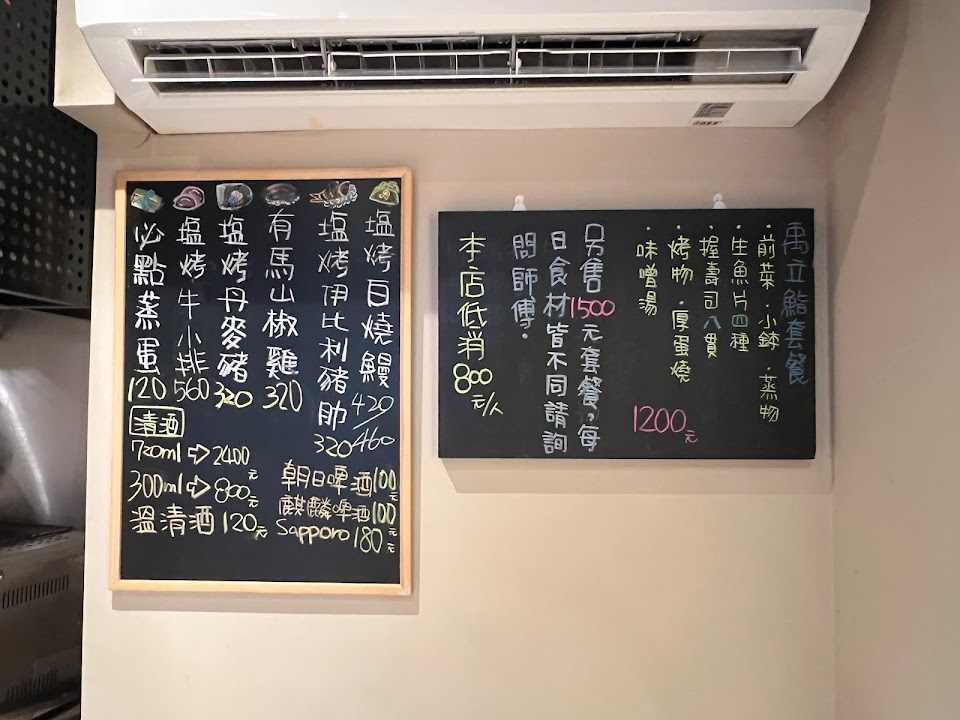 塩烤白燒鰻 420/460
塩烤伊比利豬肋 320
有馬山椒雞 320
塩烤丹麥豬 320
塩烤牛小排 560
必點蒸蛋 120
清酒
720ml⇨2400元
300ml⇨800元
溫清酒120元
朝日啤酒100元
麒麟啤酒100元
Sapporo180元
禹立鮨套餐
·前菜·小缽·蒸物
·生魚片四種
·握壽司八貫
·烤物·厚蛋燒
·味噌湯
1200元
另售1500元套餐,每
日食材皆不同請詢
問師傅·
本店低消800元/人